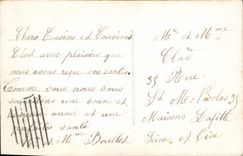 Chers Cousins et Cousines
C'est avec plaisir que
nous avons reçu vos cartes
Comme vous nous vous
souhaitons une bonne et
heureuse année et une
santé
Mme Boullet
Mr et Mme
39 Rue
St Nicolas 39
Maisons Lafitte
Seine et Oise